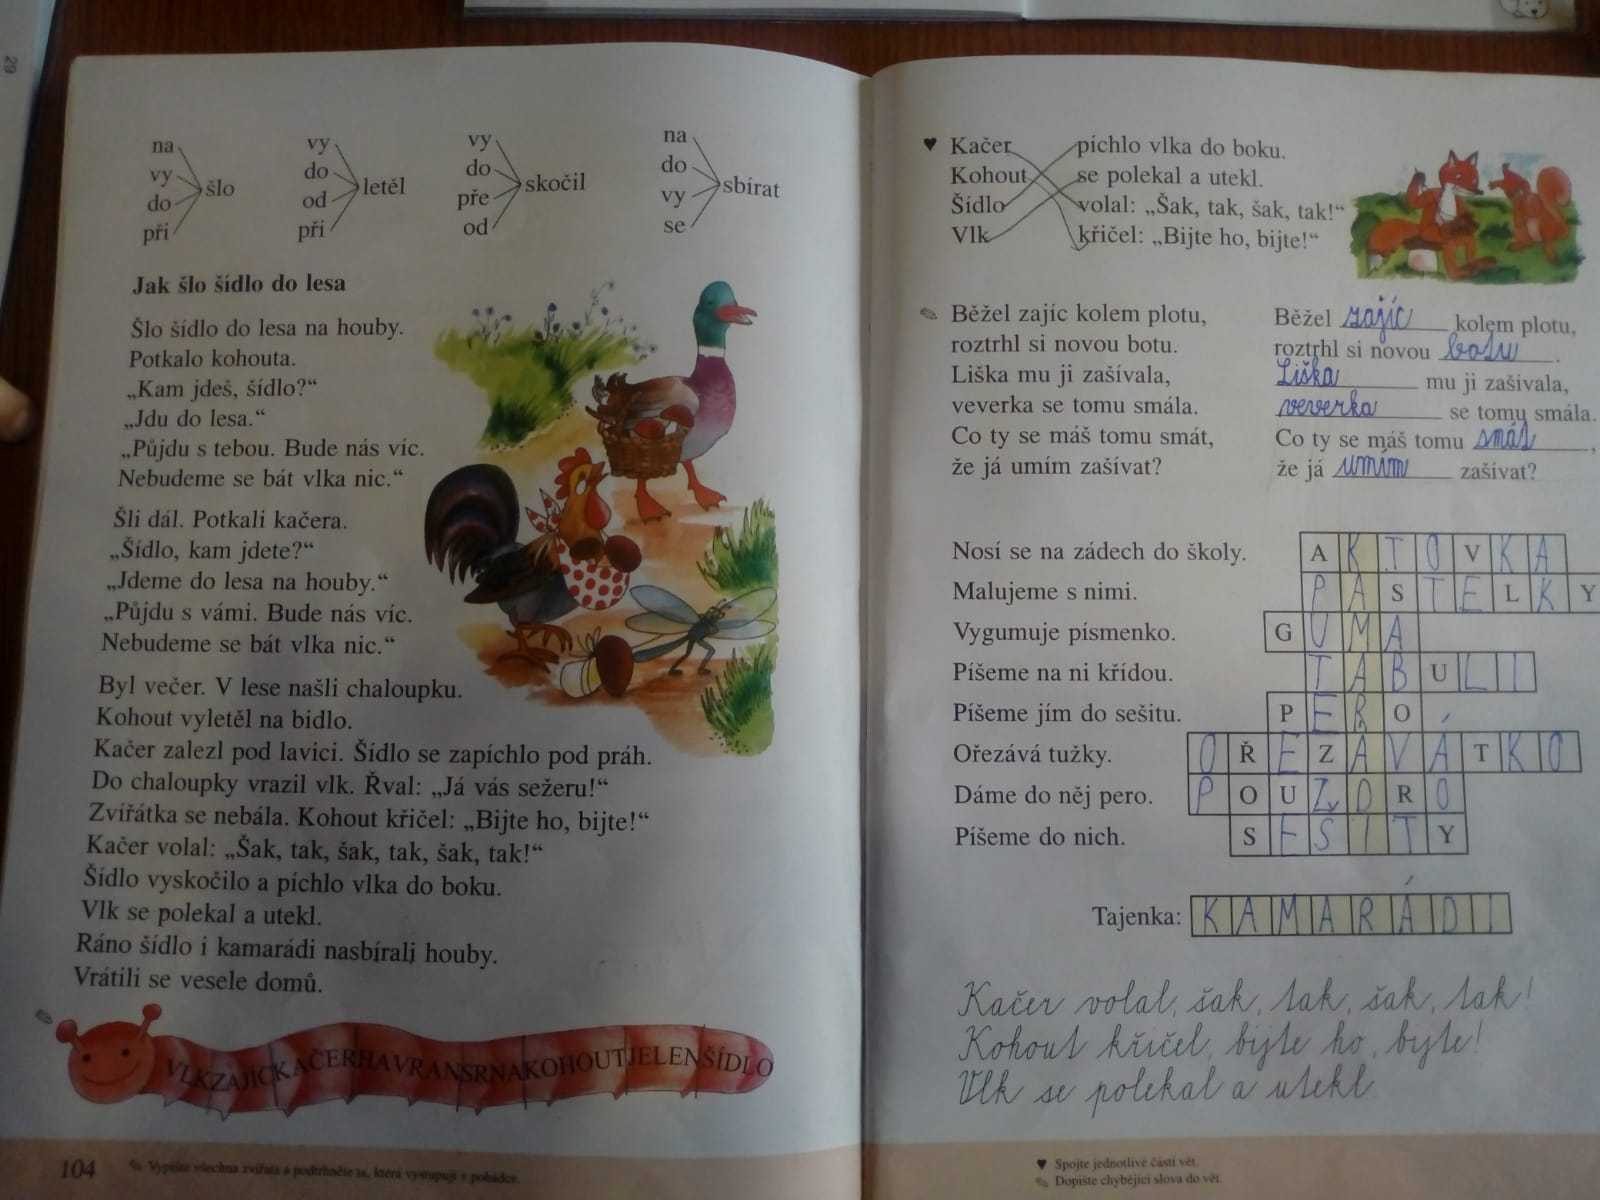 29
na
vy
do
při
šlo
vy
do
od
při
letěl
vy
do
pře
od
skočil
na
do
vy
se
sbírat
Jak šlo šídlo do lesa
Šlo šídlo do lesa na houby.
Potkalo kohouta.
„Kam jdeš, šídlo?“
„Jdu do lesa.“
„Půjdu s tebou. Bude nás víc.
Nebudeme se bát vlka nic.“
Šli dál. Potkali kačera.
„Šídlo, kam jdete?“
„Jdeme do lesa na houby.“
„Půjdu s vámi. Bude nás víc.
Nebudeme se bát vlka nic.“
Byl večer. V lese našli chaloupku.
Kohout vyletěl na bidlo.
Kačer zalezl pod lavici. Šídlo se zapíchlo pod práh.
Do chaloupky vrazil vlk. Řval: „Já vás sežeru!“
Zvířátka se nebála. Kohout křičel: „Bijte ho, bijte!“
Kačer volal: „Šak, tak, šak, tak, šak, tak!“
Šídlo vyskočilo a píchlo vlka do boku.
Vlk se polekal a utekl.
Ráno šídlo i kamarádi nasbírali houby.
Vrátili se vesele domů.
VLKZAJÍCKAČERHAVRANSRNAKOHOUTJELENŠÍDLO
104 Vypište všechna zvířata a podtrhněte ta, která vystupují v pohádce.
♥ Kačer píchlo vlka do boku.
Kohout se polekal a utekl.
Šídlo volal: „Šak, tak, šak, tak!“
Vlk křičel: „Bijte ho, bijte!“
Běžel zajíc kolem plotu,
roztrhl si novou botu.
Liška mu ji zašívala,
veverka se tomu smála.
Co ty se máš tomu smát,
že já umím zašívat?
Běžel zajíc kolem plotu,
roztrhl si novou botu.
Liška mu ji zašívala,
veverka se tomu smála.
Co ty se máš tomu smát,
že já umím zašívat?
Nosí se na zádech do školy. AKTOVKA
Malujeme s nimi. PASTELKY
Vygumuje písmenko. GUMA
Píšeme na ni křídou. TABULI
Píšeme jím do sešitu. PERO
Ořezává tužky. OŘEZAVÁTKO
Dáme do něj pero. POUZDRO
Píšeme do nich. SEŠITY
Tajenka: KAMARÁDI
Kačer volal, šak, tak, šak, tak!
Kohout křičel, bijte ho, byte!
Vlk se polekal a utekl.
♥ Spojte jednotlivé části vět.
Dopište chybějící slova do vět.